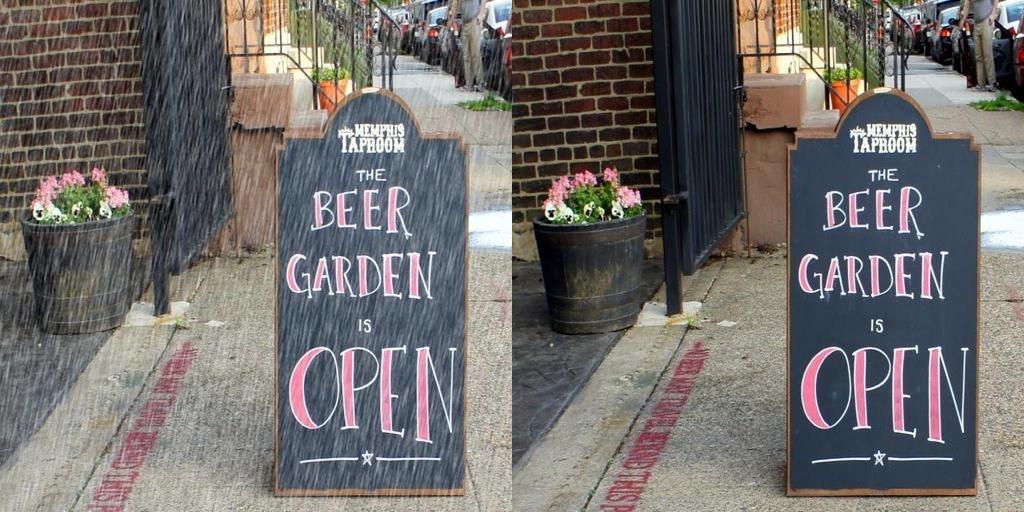 MEMPHIS
TAPROOM
THE
BEER
GARDEN
IS
OPEN
MEMPHIS
TAPROOM
THE
BEER
GARDEN
IS
OPEN